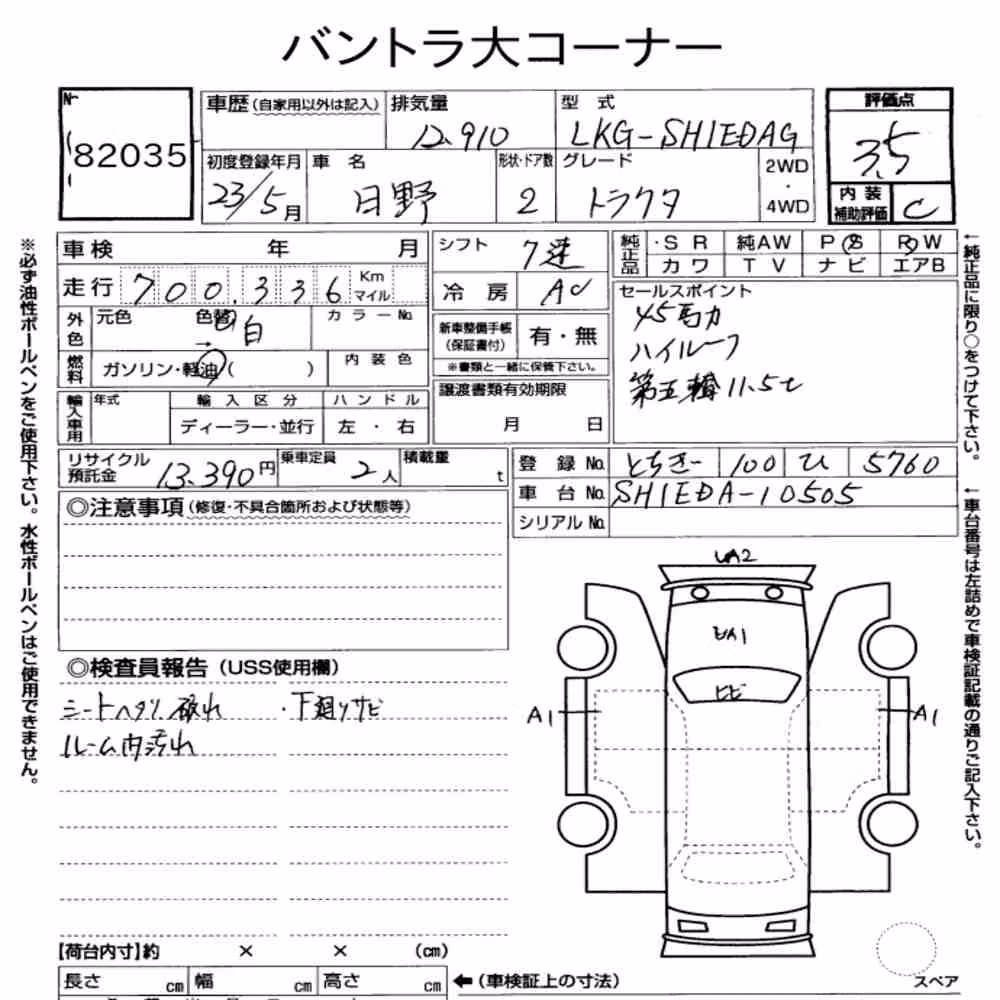 バントラ大コーナー
No 82035
車歴(自家用以外は記入) 排気量 12.910 型式 LKG-SH1EDAG
評価点 3.5
初度登録年月 23/5月 車名 日野 形状・ドア数 2 グレード トラクタ 2WD・4WD
内装補助評価 C
車検 年 月 シフト 7速
純正品 ・SR 純AW PS PW
カワ TV ナビ エアB
走行 700,336 Km マイル 冷房 AC
セールスポイント
外色 元色 色替 → 白 カラーNo.
新車整備手帳(保証書付) 有・無
※書類と一緒に保管下さい。
45馬力
ハイルーフ
第五輪11.5t
燃料 ガソリン・軽油( ) 内装色
輸入車用 年式 輸入区分 ハンドル
ディーラー・並行 左・右
譲渡書類有効期限
月 日
リサイクル預託金 13,390円 乗車定員 2人 積載量 t
登録No. とちぎ 100 ひ 5760
車台No. SH1EDA-10505
シリアルNo.
◎注意事項(修復・不具合箇所および状態等)
◎検査員報告(USS使用欄)
シートヘタリ 破れ ・下廻りサビ
ルーム内汚れ
UA2
UA1
ヒビ
A1
A1
スペア
【荷台内寸】約 × × (cm)
長さ cm 幅 cm 高さ cm ←(車検証上の寸法)
※必ず油性ボールペンをご使用下さい。水性ボールペンはご使用できません。
←純正品に限り○をつけて下さい。
←車台番号は左詰めで車検証記載の通りご記入下さい。